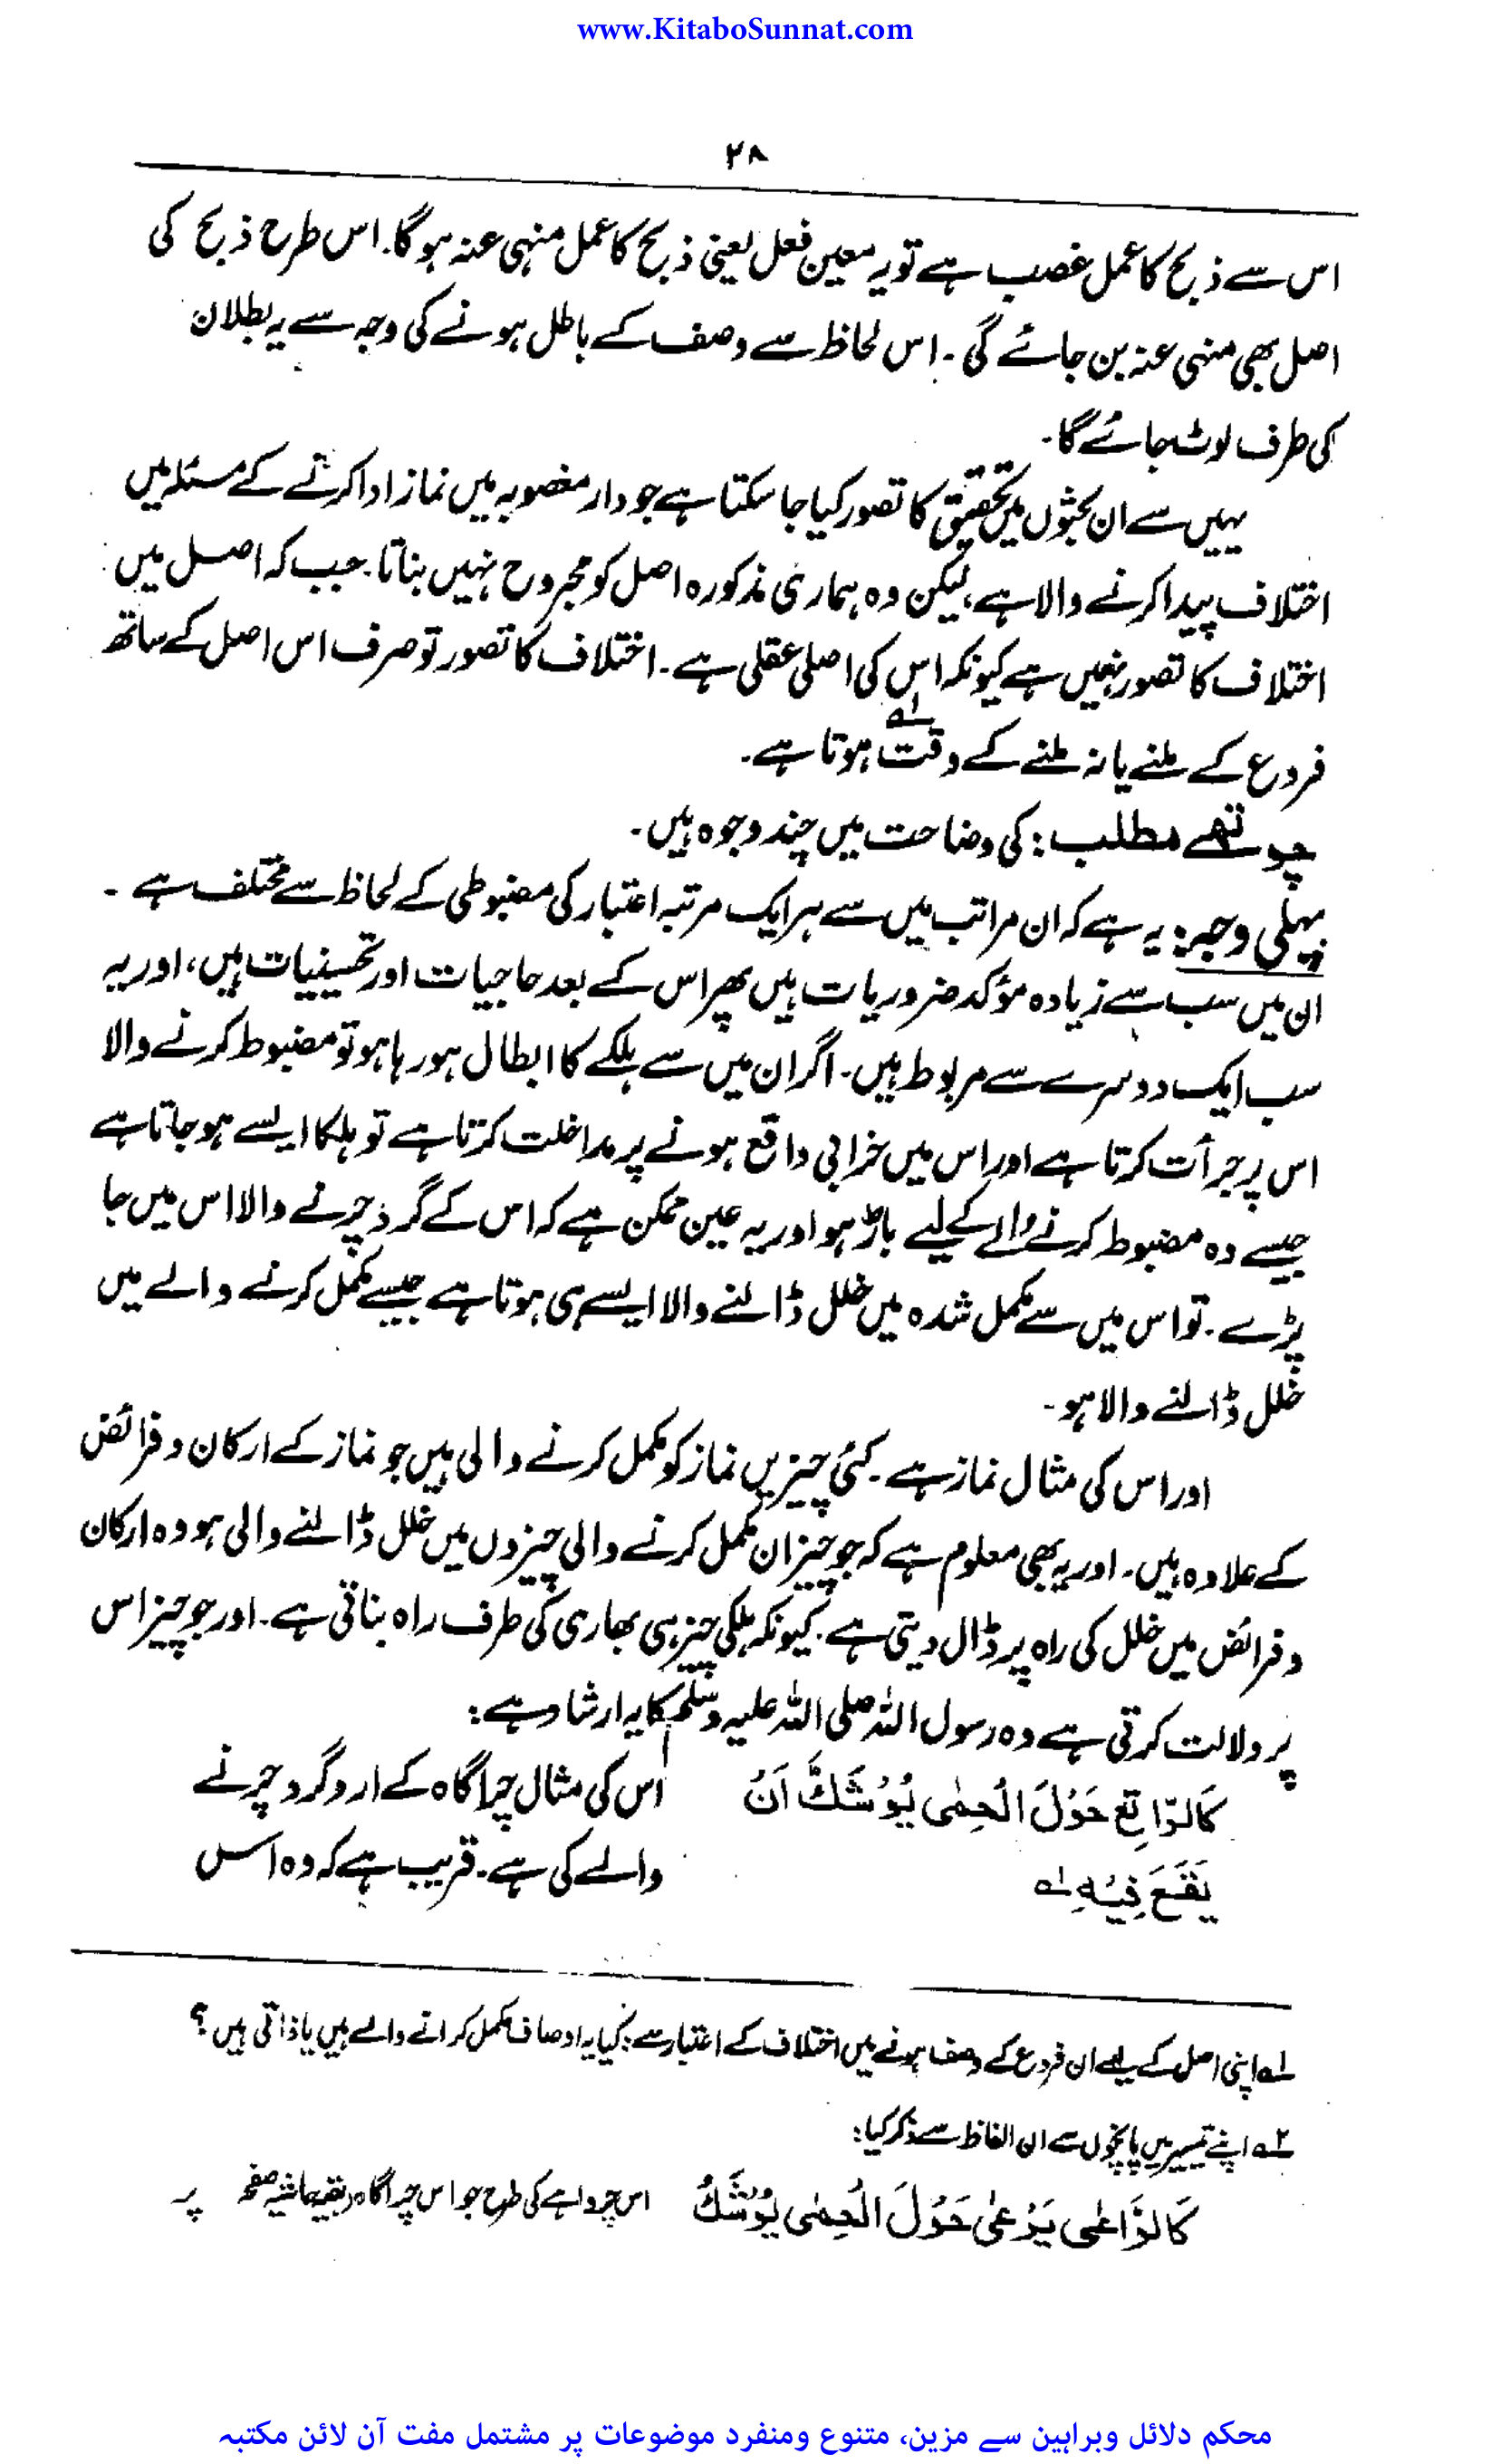 www.KitaboSunnat.com
۲۸
اس سے ذبح کا عمل غصب ہے تو یہ معین فعل یعنی ذبح کا عمل منہی عنہ ہو گا. اس طرح ذبح کی
اصل بھی منہی عنہ بن جائے گی ۔ اس لحاظ سے وصف کے باطل ہونے کی وجہ سے یہ بطلان
کی طرف لوٹ جائے گا۔
یہیں سے ان بحثوں میں تحقیق کا تصور کیا جا سکتا ہے جو دار مغصوبہ میں نماز ادا کرنے کے مسئلہ میں
اختلاف پیدا کرنے والا ہے، لیکن وہ ہماری مذکورہ اصل کو مجروح نہیں بناتا. جب کہ اصل میں
اختلاف کا تصور نہیں ہے کیونکہ اس کی اصلی عقلی ہے۔ اختلاف کا تصور تو صرف اس اصل کے ساتھ
فروع کے ملنے یا نہ ملنے کے وقت لہ ہوتا ہے۔
چوتھے مطلب: کی وضاحت میں چند وجوہ ہیں۔
پہلی وجہ: یہ ہے کہ ان مراتب میں سے ہر ایک مرتبہ اعتبار کی مضبوطی کے لحاظ سے مختلف ہے ۔
ان میں سب سے زیادہ مؤکد ضروریات ہیں پھر اس کے بعد حاجیات اور تحسینیات ہیں، اور یہ
سب ایک دوسرے سے مربوط ہیں۔ اگر ان میں سے ہلکے کا ابطال ہو رہا ہو تو مضبوط کرنے والا
اس پر جرأت کرتا ہے اور اس میں خرابی واقع ہونے پر مداخلت کرتا ہے تو ہلکا ایسے ہو جاتا ہے
جیسے وہ مضبوط کرنے والے کے لیے باڑ ہو اور یہ عین ممکن ہے کہ اس کے گرد چرنے والا اس میں جا
پڑے. تو اس میں سے مکمل شدہ میں خلل ڈالنے والا ایسے ہی ہوتا ہے جیسے مکمل کرنے والے میں
خلل ڈالنے والا ہو۔
اور اس کی مثال نماز ہے۔ کئی چیزیں نماز کو مکمل کرنے والی ہیں جو نماز کے ارکان و فرائض
کے علاوہ ہیں۔ اور یہ بھی معلوم ہے کہ جو چیز ان مکمل کرنے والی چیزوں میں خلل ڈالنے والی ہو وہ ارکان
و فرائض میں خلل کی راہ پر ڈال دیتی ہے. کیونکہ ہلکی چیز ہی بھاری کی طرف راہ بناتی ہے۔ اور جو چیز اس
پر دلالت کرتی ہے وہ رسول اللہ صلی اللہ علیہ وسلم کا یہ ارشاد ہے:
كَالرَّاتِعِ حَوْلَ الْحِمٰى يُوْشَكُ اَنْ اس کی مثال چراگاہ کے ارد گرد چرنے
يَقَعَ فِيْهِ لہ والے کی ہے۔ قریب ہے کہ وہ اس
لہ اپنی اصل کے لیے ان فروع کے وصف ہونے میں اختلاف کے اعتبار سے: کیا یہ اوصاف مکمل کرانے والے ہیں یا ذاتی ہیں؟
۲ہ اپنے تیسیر میں پانچوں سے ان الفاظ سے ذکر کیا:
كَالرَّاعِى يَرْعٰى حَوْلَ الْحِمٰى يُوْشَكُ اس چرواہے کی طرح جو اس چراگاہ (بقیہ حاشیہ صفحہ پر
محکم دلائل وبراہین سے مزین، متنوع ومنفرد موضوعات پر مشتمل مفت آن لائن مکتبہ